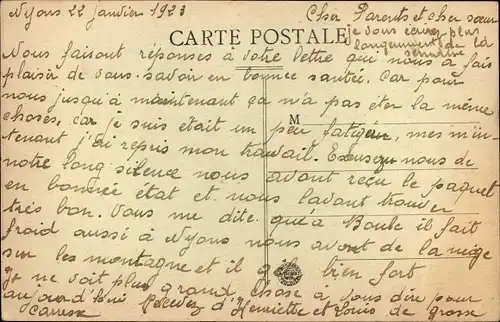 Nyons 22 janvier 1923
Cher Parents et cher sœur
je vous écirez plus
longuement de la
semaine
CARTE POSTALE
Nous faisont réponses à votre lettre qui nous a fais
plaisir de vous savoir en bonnee santée. Car pour
nous jusqu'à maintenant ça n'a pas éter la même
choses, car je suis était un peu fatiguer, mes m'in-
M
tenant j'ai repris mon travail. Excusez nous de
notre long silence nous avont reçu le paquet
en bonnée état et nous l'avont trouver
très bon. Vous me dite qu'à Boule il fait
froid aussi à Nyons nous avont de la neige
sur les montagne et il gèle bien fort
Je ne voit plus grand chose à vous dire pour
aujourd'hui Recevez d'Henriette et Louis de grosse
caresse